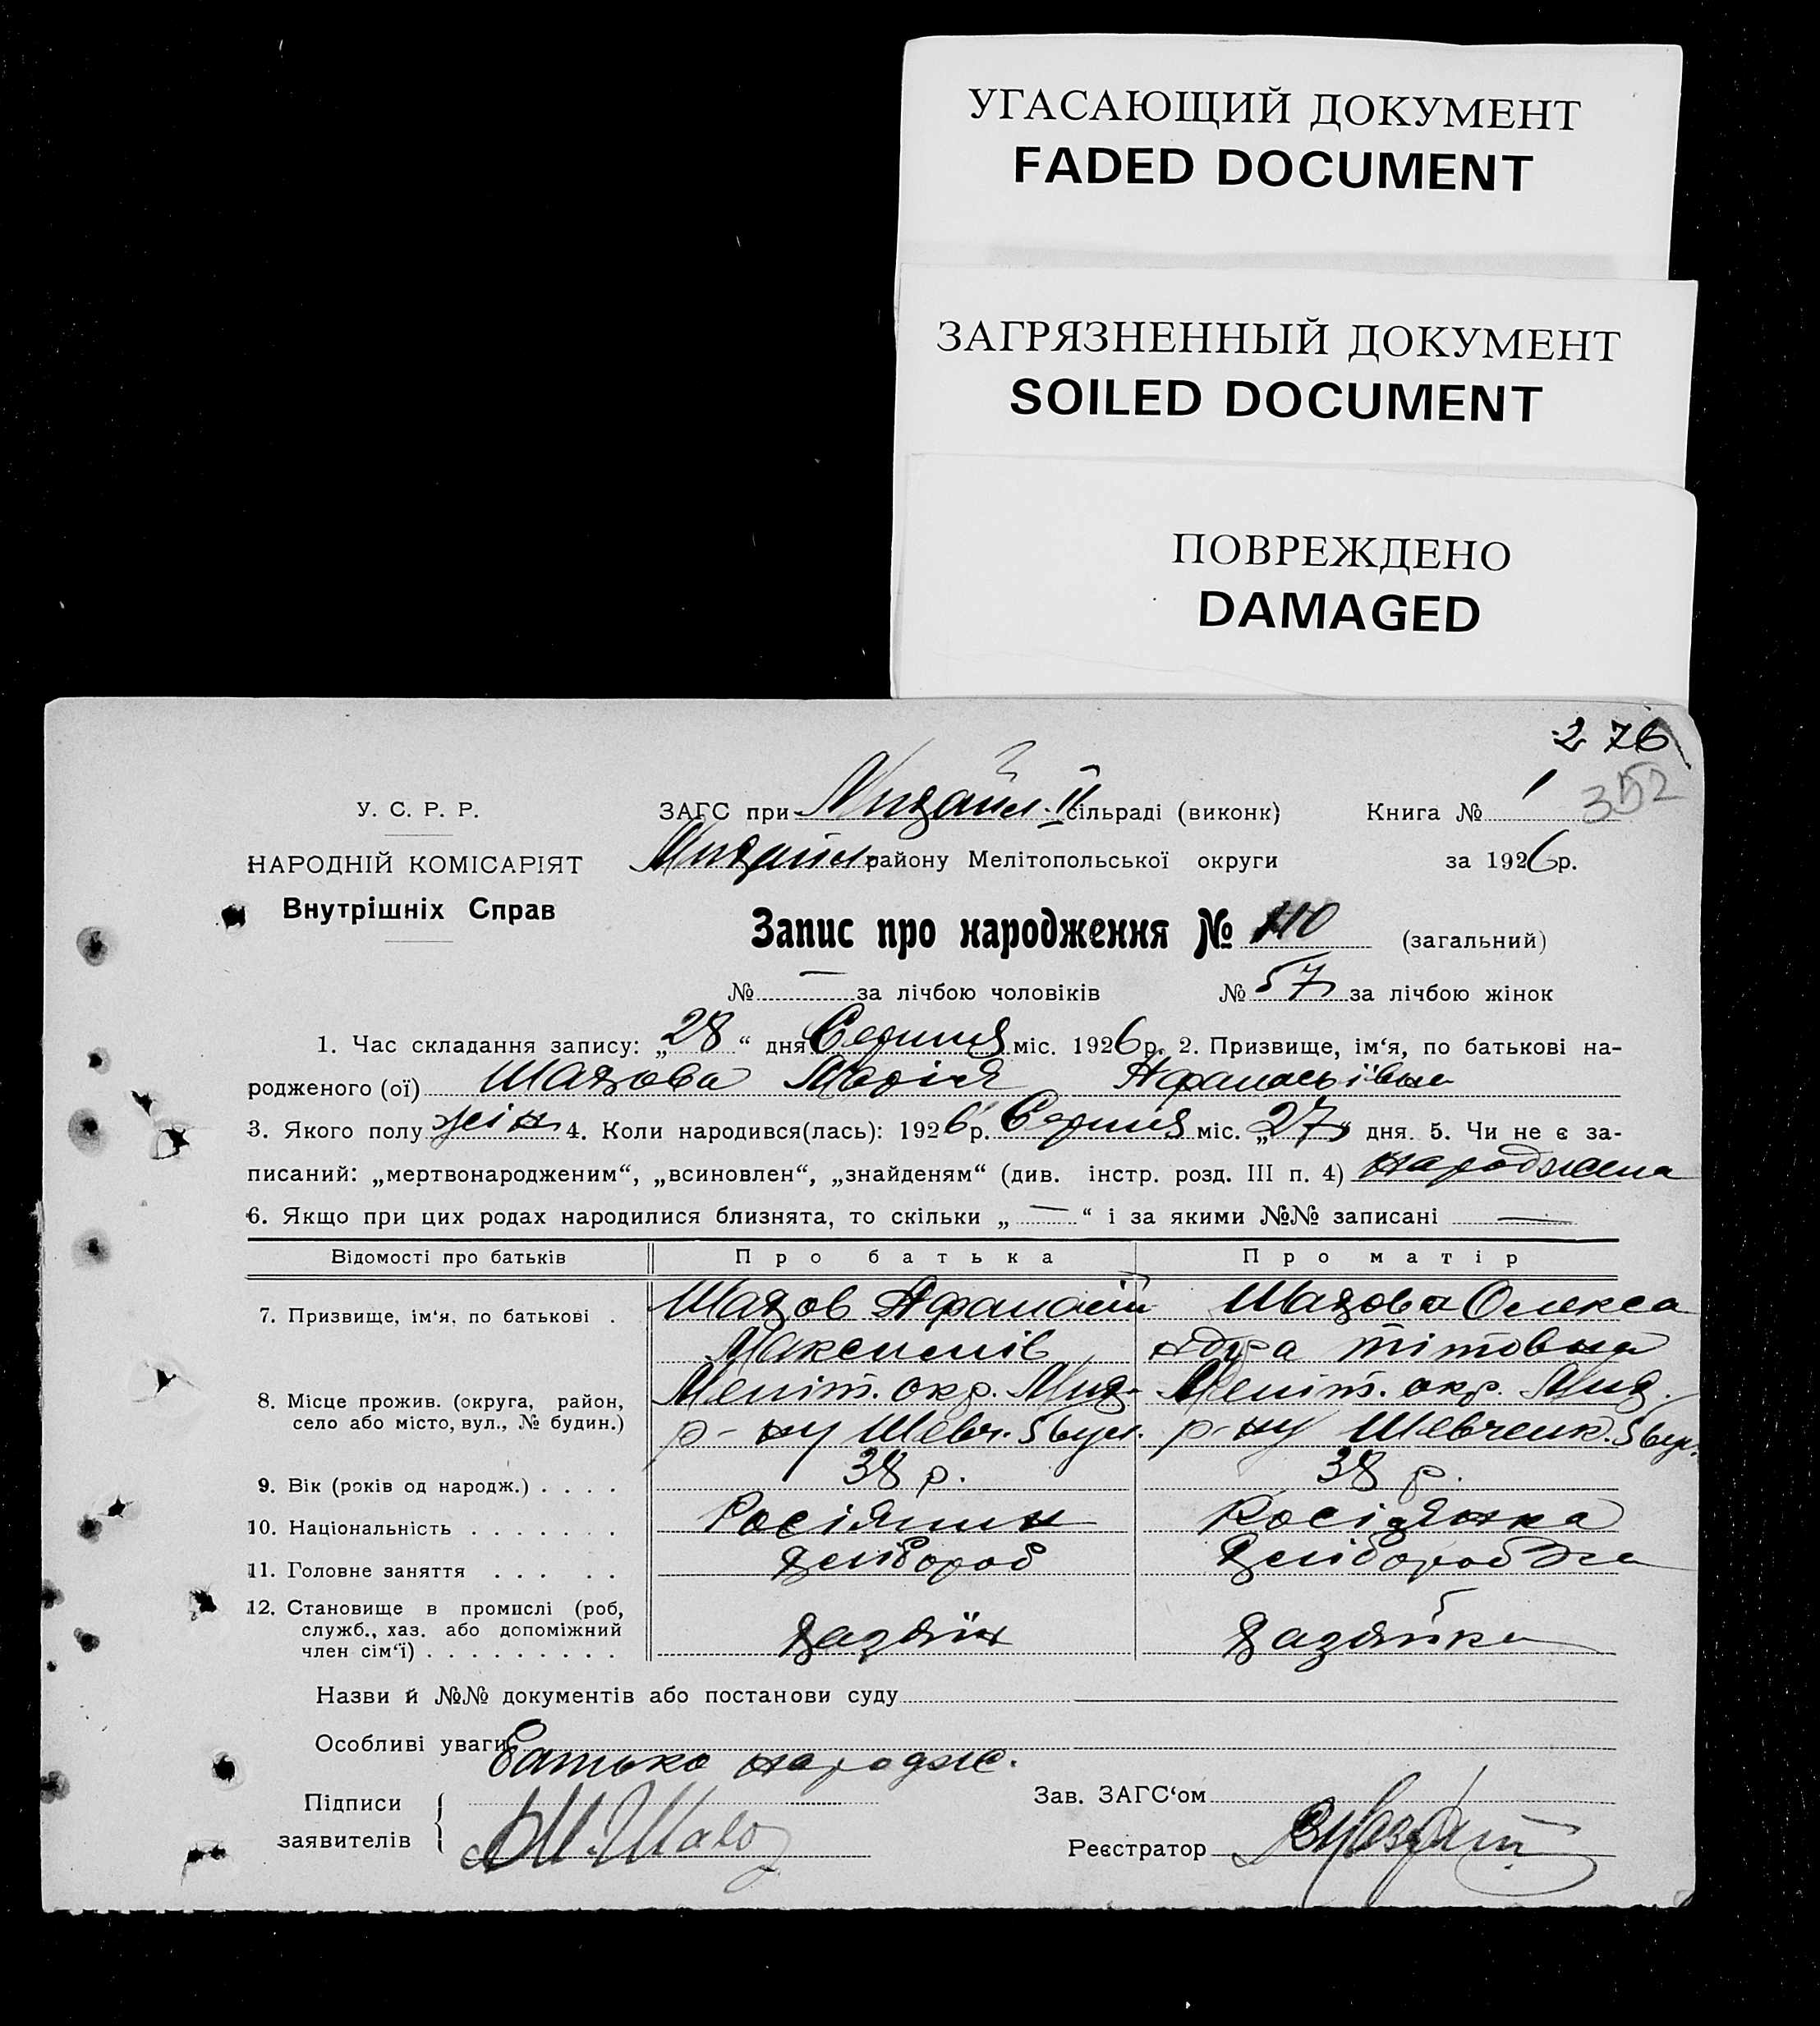 УГАСАЮЩИЙ ДОКУМЕНТ
FADED DOCUMENT
ЗАГРЯЗНЕННЫЙ ДОКУМЕНТ
SOILED DOCUMENT
ПОВРЕЖДЕНО
DAMAGED
276
352
У. С. Р. Р.
НАРОДНІЙ КОМІСАРІЯТ
Внутрішніх Справ
ЗАГС при Михайл. II сільраді (виконк) Книга № 1
Михайл району Мелітопольської округи за 1926 р.
Запис про народження № 110 (загальний)
№ — за лічбою чоловіків № 57 за лічбою жінок
1. Час складання запису: „28“ дня Серпня міс. 1926 р. 2. Призвище, ім‘я, по батькові на-
родженого (ої) Шахова Марія Афанасьівна
3. Якого полу жін 4. Коли народився(лась): 1926 р. Серпня міс. „27“ дня. 5. Чи не є за-
писаний: „мертвонародженим“, „всиновлен“, „знайденям“ (див. інстр. розд. III п. 4) народжена
6. Якщо при цих родах народилися близнята, то скільки „—“ і за якими №№ записані —
Відомості про батьків Про батька Про матір
7. Призвище, ім‘я, по батькові . Шахов Афанасій Шахова Олекса
Максимів ндра тітовна
8. Місце прожив. (округа, район, Меліт. окр. Мих. Меліт. окр. Мих.
село або місто, вул., № будин.) р-ну Шевч. 5 вул. р-ну Шевченк. 5 вул.
9. Вік (років од народж.) . . . . 38 р. 38 р.
10. Національність . . . . . . . Росіянин Росіянка
11. Головне заняття . . . . . Хлібороб Хліборобка
12. Становище в промислі (роб,
служб., хаз. або допоміжний Хазяїн Хазяйка
член сім‘ї) . . . . . . . . .
Назви й №№ документів або постанови суду
Особливі уваги Батько народж.
Підписи Зав. ЗАГС‘ом
заявителів А М. Шахо
Реєстратор